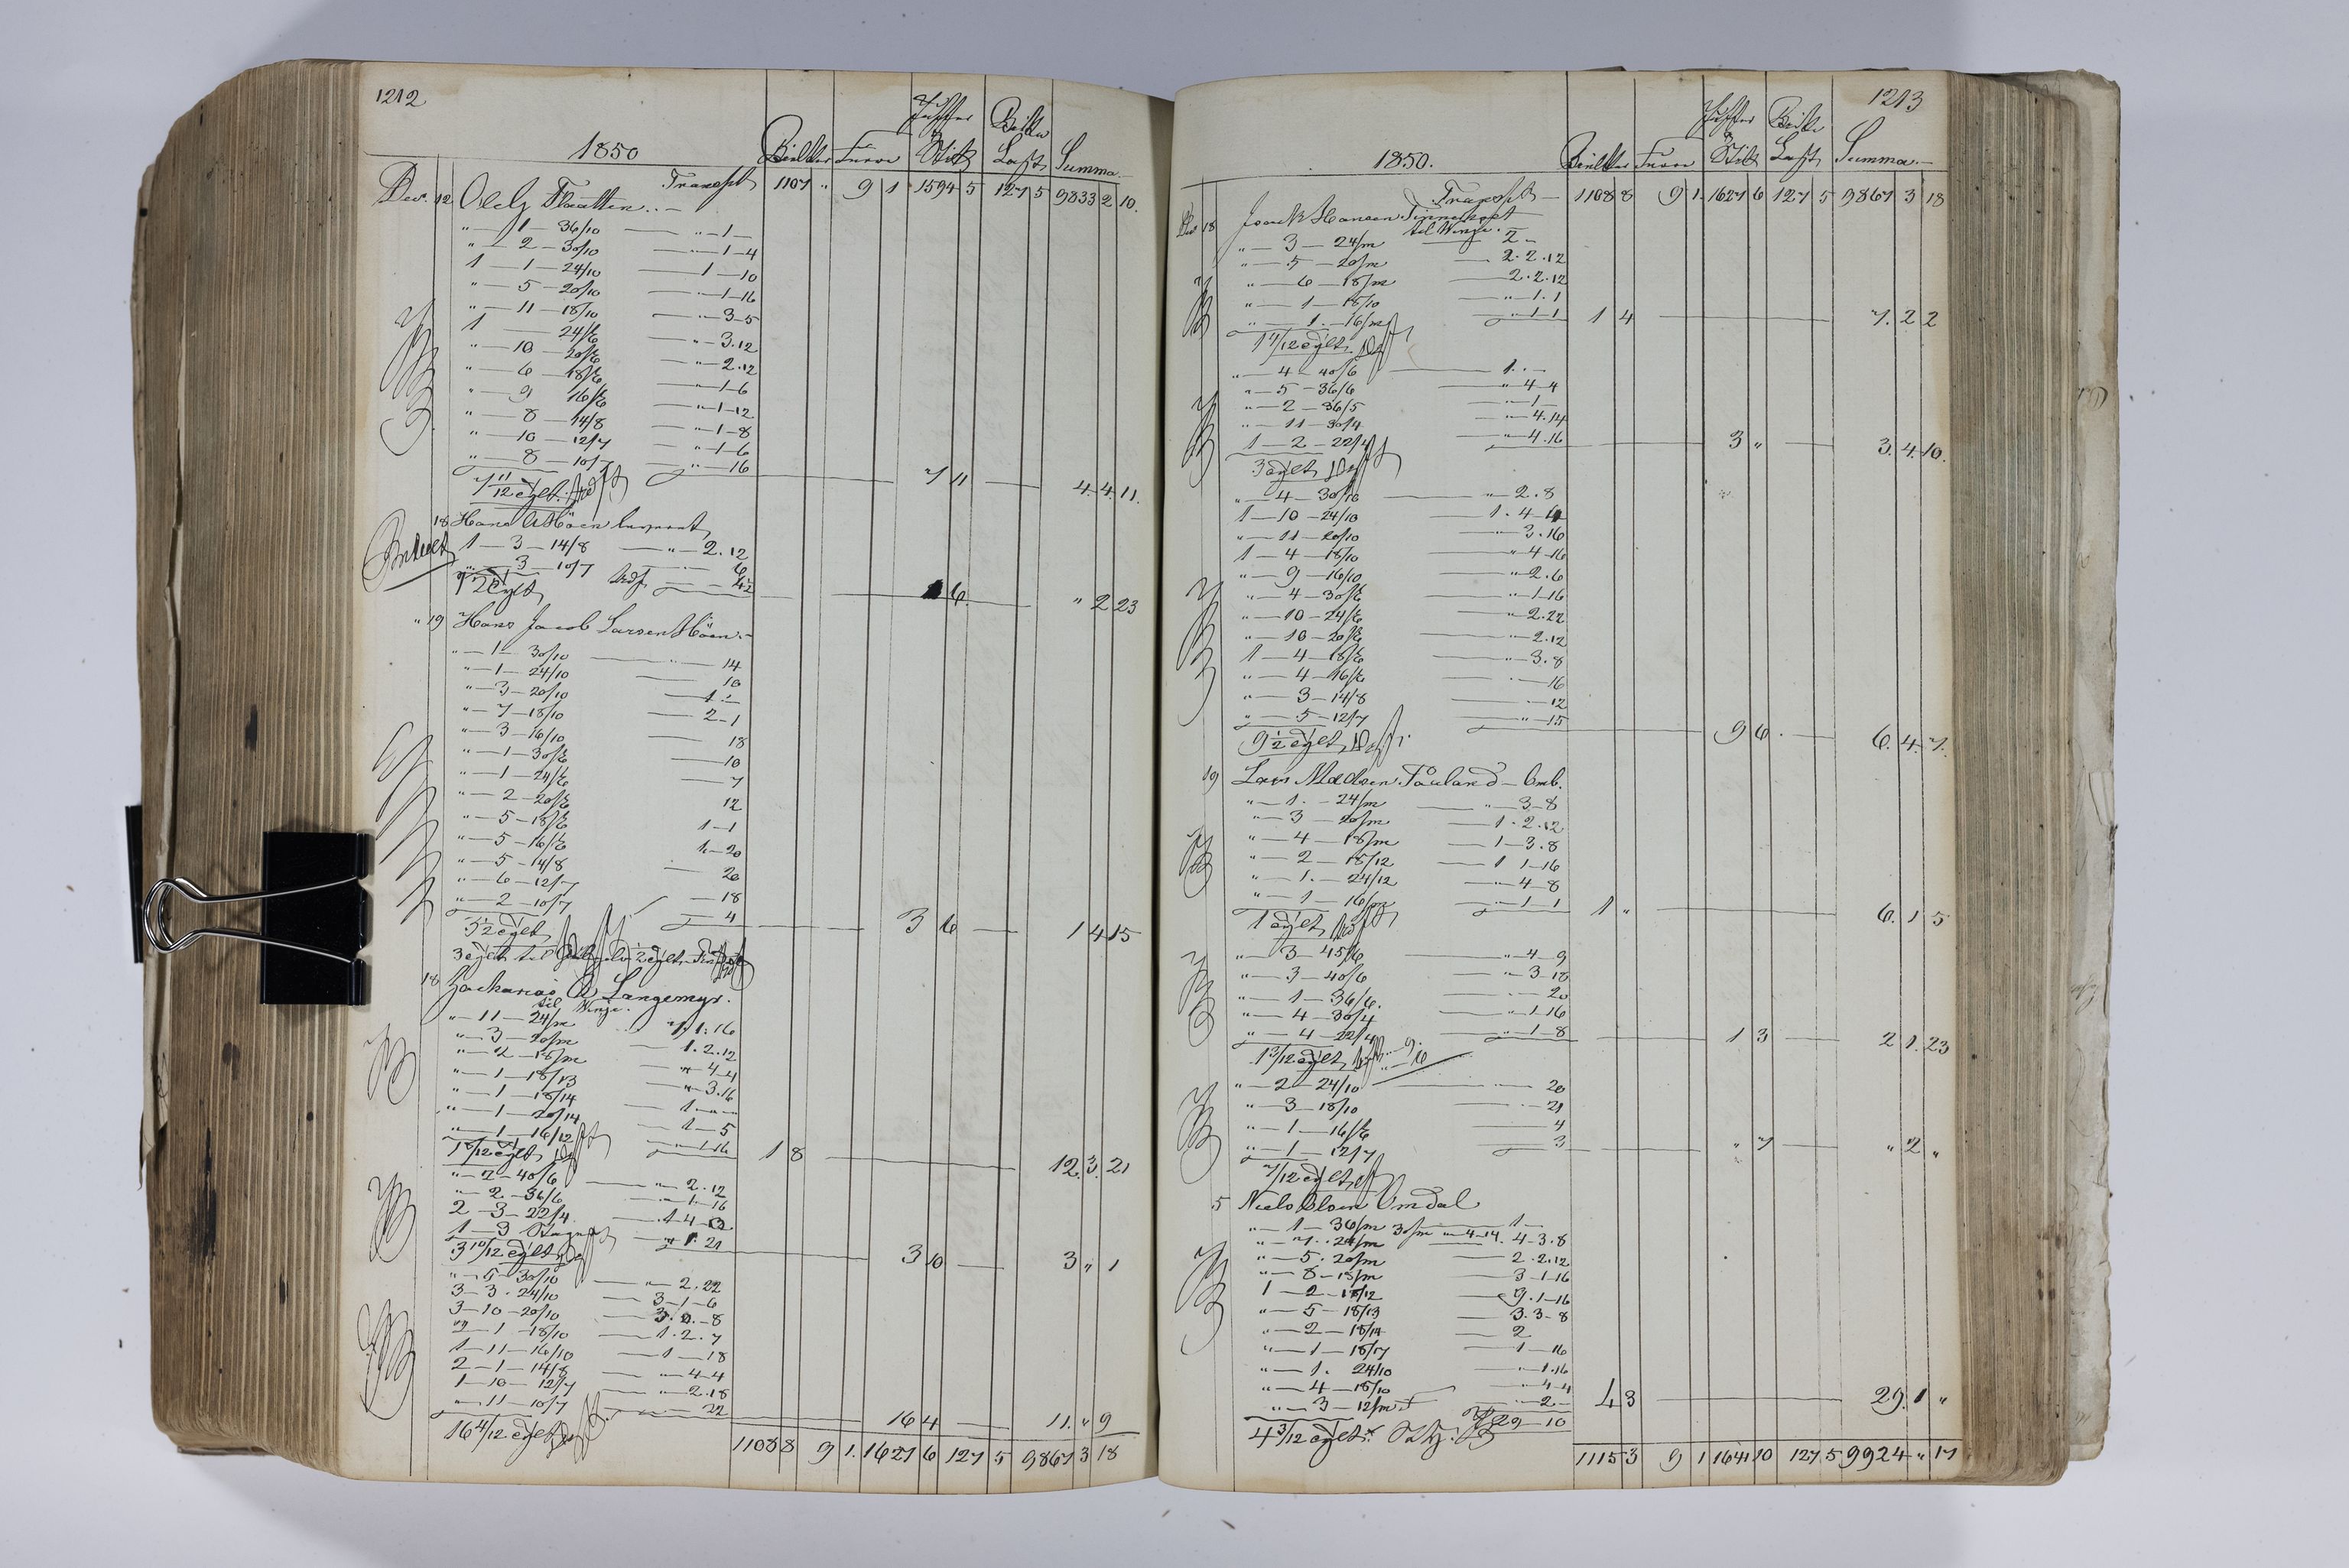 1212
1850 Bielker Furer Juffer & Stik Beste Last Summa
Transpt 1107 " 9 1 1594 5 127 5 9833 2 10.
Dec. 12 Ole G Flaatten
" 1 — 36/10 — " — 1 —
" — 2 — 30/10 — " — 1 — 4
1 — 1 — 24/10 — 1 — 10
" — 5 — 20/10 — " — 1 — 16
" — 11 — 18/10 — " — 3 — 5
1 — 24/E — " — 3.12
" — 10 — 20/E — " — 2.12
" — 6 — 18/E — " — 1 — 6
" — 9 16/E — " — 1 — 12
" — 8 — 14/8 — " — 1 — 8
" — 10 — 12/7 — " — 1 — 6
" — 8 — 10/7 — " — 16
7 11/12 eglt. 7 11 4. 4. 11.
18 Hans A Höen
Betalt 1 — 3 — 14/8 — " — 2.12
" — 3 — 10/7 — 6
6 " 2 23
" 19 Hans Jacob Larsen Höen
" — 1 — 30/10 — " — 14
" — 1 — 24/10 — 10
" — 3 — 20/10 — 1 —
" — 7 — 18/10 — 2 — 1
" — 3 — 16/10 — 18
" — 1 — 30/E — 10
" — 1 — 24/E — 7
" — 2 — 20/E 12
" — 5 — 18/E 1 — 1
" — 5 — 16/E 1 — 20
" — 5 — 14/8 — 20
" — 6 — 12/7 — 18
" — 2 — 10/7 — 4
3 1/2 eglt 3 6 1 4 15
3 eglt til
18 Zacharias A Langemyr.
til Winge.
" — 11 — 24/m 7. 1. 16
" — 3 — 20/m — 1. 2. 12
" — 2 — 18/m — " 4 — 4
" — 1 — 18/13 — " — 3.16
" — 1 — 18/14 — 1 — " —
" — 1 — 20/14 — 1 — 5
" — 1 — 16/12 — " — 1.16
1 8/12 eglt 1 8 12. 3. 21
" — 2 — 40/6 — " — 2.12
" — 2 — 36/6 — " — 1 — 16
2 — 3 — 22/4 — 1 — 4 —
1 — 3 — " 1. 21
3 10/12 eglt 3 10 3 " 1
" — 5 — 30/10 — " — 2.22
3 — 3 — 24/10 — 3 — 1 — 6
3 — 10 — 20/10 — 3. — 8
2 — 1 — 18/10 — 1. 2. 7
1 — 11 — 16/10 — 1 — 18
2 — 1 — 14/8 — " — 4 — 4
1 — 10 — 12/7 — " — 2.18
" — 11 — 10/7 — 22
16 4/12 eglt 16 4 11. " 9
1108 8 9 1. 1627 6 127 5 9867 3 18
1213
1850. Bielker Furer Juffer & Stik Beste Last Summa
Transpt — 1108 8 9 1. 1627 6 127 5 9867 3 18
Dec 18 Hansen
til Winge.
" — 3 — 24/m 2 "
" — 5 — 20/m — 2. 2. 12
" — 6 — 18/m — 2. 2. 12
" — 1 — 18/10 — " — 1. 1
" — 1. — 16/m — " — 1 — 1
1 4/12 eglt. 1 4 7. 2 2
" — 4 — 40/6 — 1. " —
" — 5 — 36/6 — " — 4 — 4
" — 2 — 36/5 — " — 1 —
" — 11 — 30/4 — " — 4.14
1 — 2 — 22/4 — " — 4.16
3 eglt 3 " 3. 4. 10.
" — 4 — 30/10 — " — 2.8
1 — 10 — 24/10 — 1. 4 — 4
" — 11 — 20/10 — " — 3.16
1 — 4 — 18/10 — " 4 — 16
" — 9 — 16/10 — " — 2.6
" — 4 — 30/E — " — 1 — 16
" — 10 — 24/E — " — 2.22
" — 10 — 20/E — " — 2.12
1 — 4 — 18/E — " — 3.8
" — 4 — 16/E — 16
" — 3 — 14/8 — 12
" — 5 — 12/7 — " — 15
9 1/2 eglt 9 6 6. 4. 7.
19 Lars Madsen Fouland
" — 1. — 24/m — " — 3 — 8
" — 3 — 20/m — 1. 2. 12
" — 4 — 18/m — 1 — 3. 8
" — 2 — 18/12 — 1 1 — 16
" — 1. — 24/12 — " — 4 — 8
" — 1 — 16/m — " — 1 — 1
1 eglt 1 " 6. 1 5
" — 3 — 45/6 — " — 4 — 9
" — 3 — 40/6 — " — 3 — 18
" — 1 — 36/6. — 20
" — 4 — 30/4 — " — 1 — 16
" — 4 — 22/4 — " — 1 — 8
1 3/12 eglt 1 3 2 1. 23
" — 2 — 24/10 — 20
" — 3 — 18/10 — 21
" — 1 — 16/E — 4
" — 1 — 12/7 — 3
7/12 eglt " 7 " 2 "
5 Niels Olsen Omdal
" — 1 — 36/m 30/m — " — 4 — 14. 1 —
" — 7. 24/m 4 — 3. 8
" — 5. 20/m — 2. 2. 12
" — 8 — 18/m — 3 — 1 — 16
1 — 2 — 18/12 — 9. 1 — 16
" — 5 — 18/13 — 3. 3 — 8
" — 2 — 18/14 — 2
" — 1 — 18/17 — 1 — 16
" — 1. 24/10 — " — 1.16
" — 4 — 18/10 — " — 4 — 4
" — 3 — 12/m — 2 —
4 3/12 eglt. 29 — 10 4 3 29. 1 "
1115 3 9 1 1641 10 127 5 9924 " 17